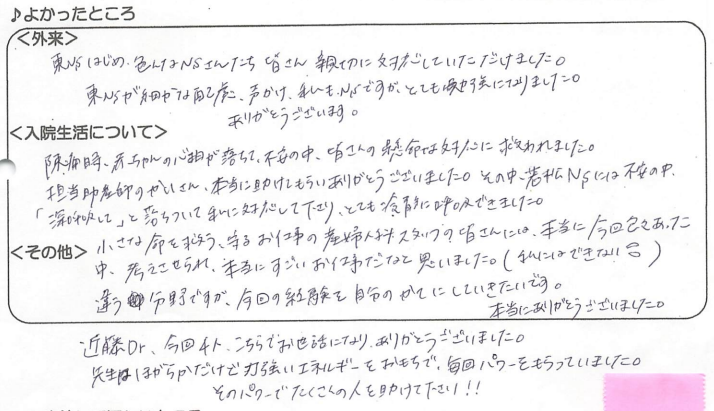 ♪よかったところ
＜外来＞
東NSはじめ、色んなNSさんたち皆さん親切に対応していただけました。
東NSが細かな配慮、声かけ、私もNSですが、とても勉強になりました。
ありがとうございます。
＜入院生活について＞
陣痛時、赤ちゃんの心拍が落ちて、不安の中、皆さんの懸命な対応に救われました。
担当助産師のさん、本当に助けてもらいありがとうございました。その中、若松NSには不安の中、
「深呼吸して」と落ちついて私に対応して下さり、とても冷静に呼吸できました。
＜その他＞ 小さな命を救う、守るお仕事の産婦人科スタッフの皆さんには、本当に今回色々あった
中、考えさせられ、本当にすごいお仕事だなと思いました。（私にはできない）
違う分野ですが、今回の経験を自分のかてにしていきたいです。
本当にありがとうございました。
近藤Dr、今回、こちらでお世話になり、ありがとうございました。
先生はほがらかだけど力強いエネルギーをおもちで、毎回パワーをもらっていました。
そのパワーでたくさんの人を助けて下さい!!